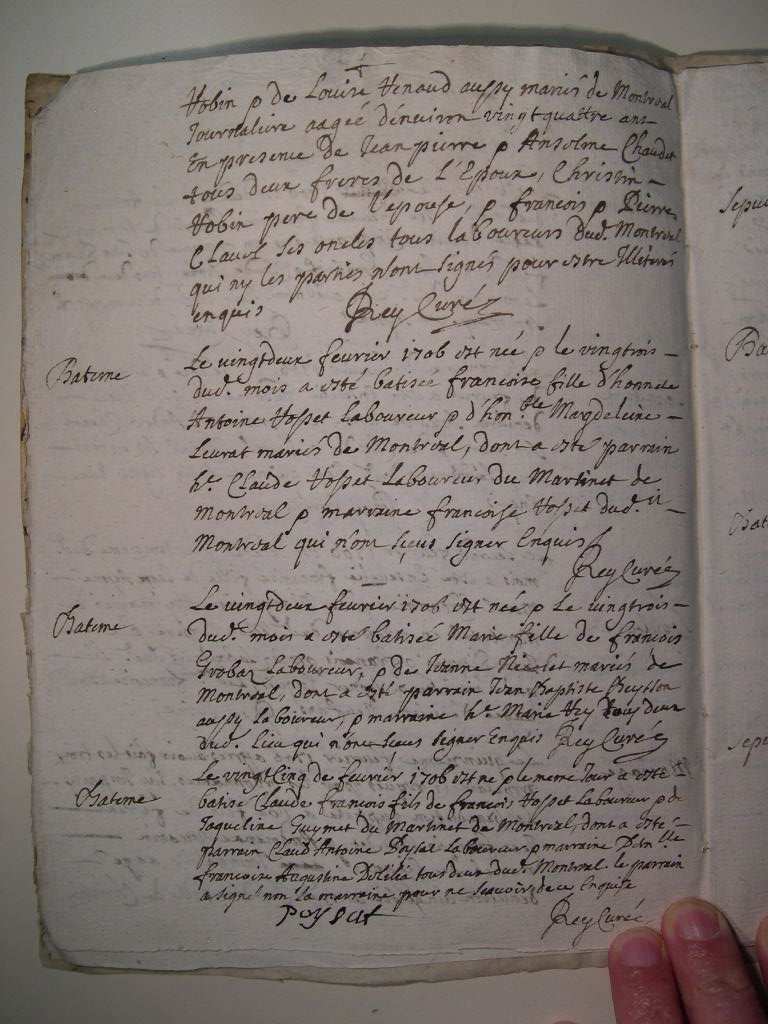 hobin & de Louise henaud aussy mariés de Montreal
Journaliere aageé d'enuiron vingt quattre ans
En presence de Jean pierre & Anselme Chaudet
tous deux freres de L'Epoux, Christin
hobin pere de l'epouse, & francois & Pierre
Clauel ses oncles tous laboureurs dud. Montreal
qui ny les parties n'ont signés pour estre Illiterés
enquis Rey Curé
Bateme
Le vingtdeux feurier 1706 est née & le vingtrois
dud. mois a esté batisée francoise fille d'honnete
Antoine hosset Laboureur & d'hon.ble Magdeleine
Leurat mariés de Montreal, dont a esté parrain
h.e Claude hosset Laboureur du Martinet de
Montreal & marraine francoise hosset dud.
Montreal qui n'ont sceus signer Enquis
Rey Curé
Bateme
Le vingtdeux feurier 1706 est née & Le vingtrois
dud. mois a esté batiseé Marie fille de francois
Grobaz Laboureur, & de Jeanne Nicolet mariés de
Montreal, dont a esté parrain Jean Baptiste
aussy laboureur, & marraine h.e Marie tous deux
dud. Lieu qui n'ont sceus signer Enquis Rey Curé
Bateme
Le vingt Cinq de feurier 1706 est né & le meme Jour a esté
batisé Claude francois fils de francois hosset Laboureur & de
Jaqueline Guymet du Martinet de Montreal, dont a esté
parrain Claud'Antoine Poysat Laboureur & marraine
francoise Augustine Delilia tous deux dud. Montreal. le parrain
a signé non la marraine pour ne scauoir de ce Enquise
poysat Rey Curé
Bat